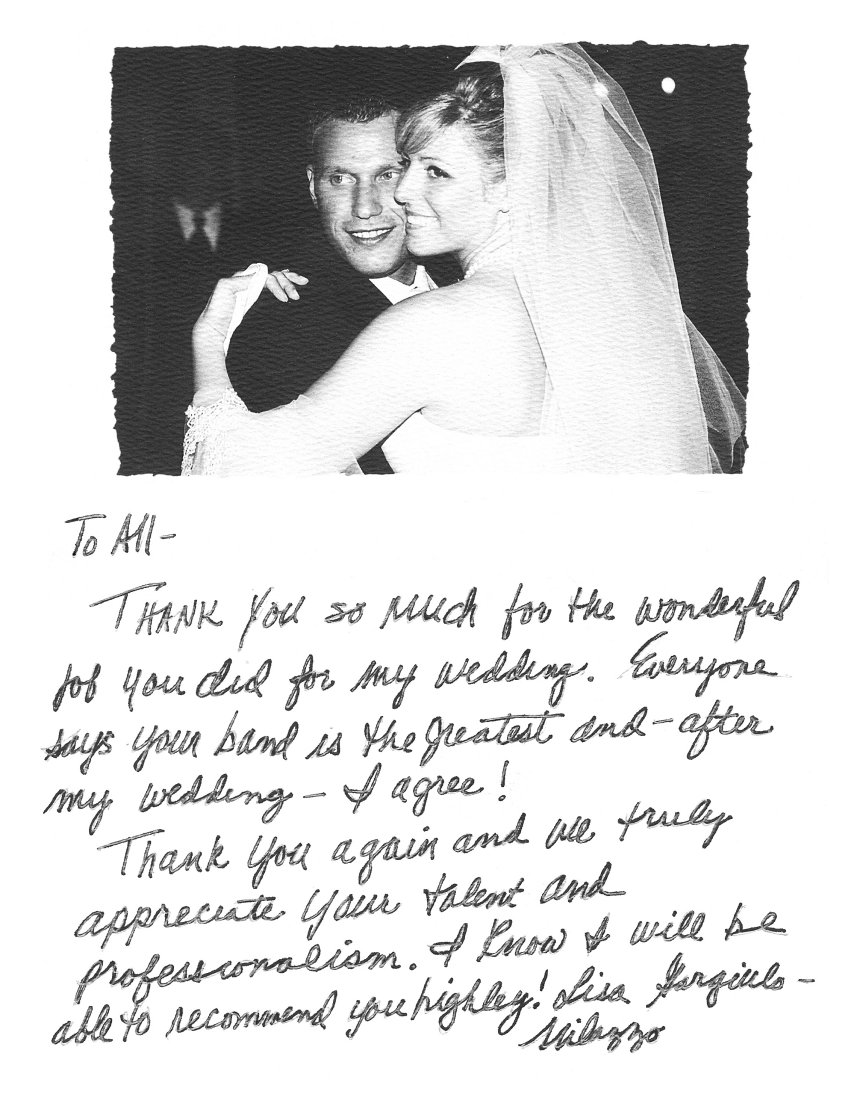 To All-
THANK You so much for the wonderful
job you did for my wedding. Everyone
says your band is the greatest and-after
my wedding - I agree!
Thank You again and we truly
appreciate your talent and
professionalism. I know I will be
able to recommend you highley! Lisa Gargiulo-
Milazzo